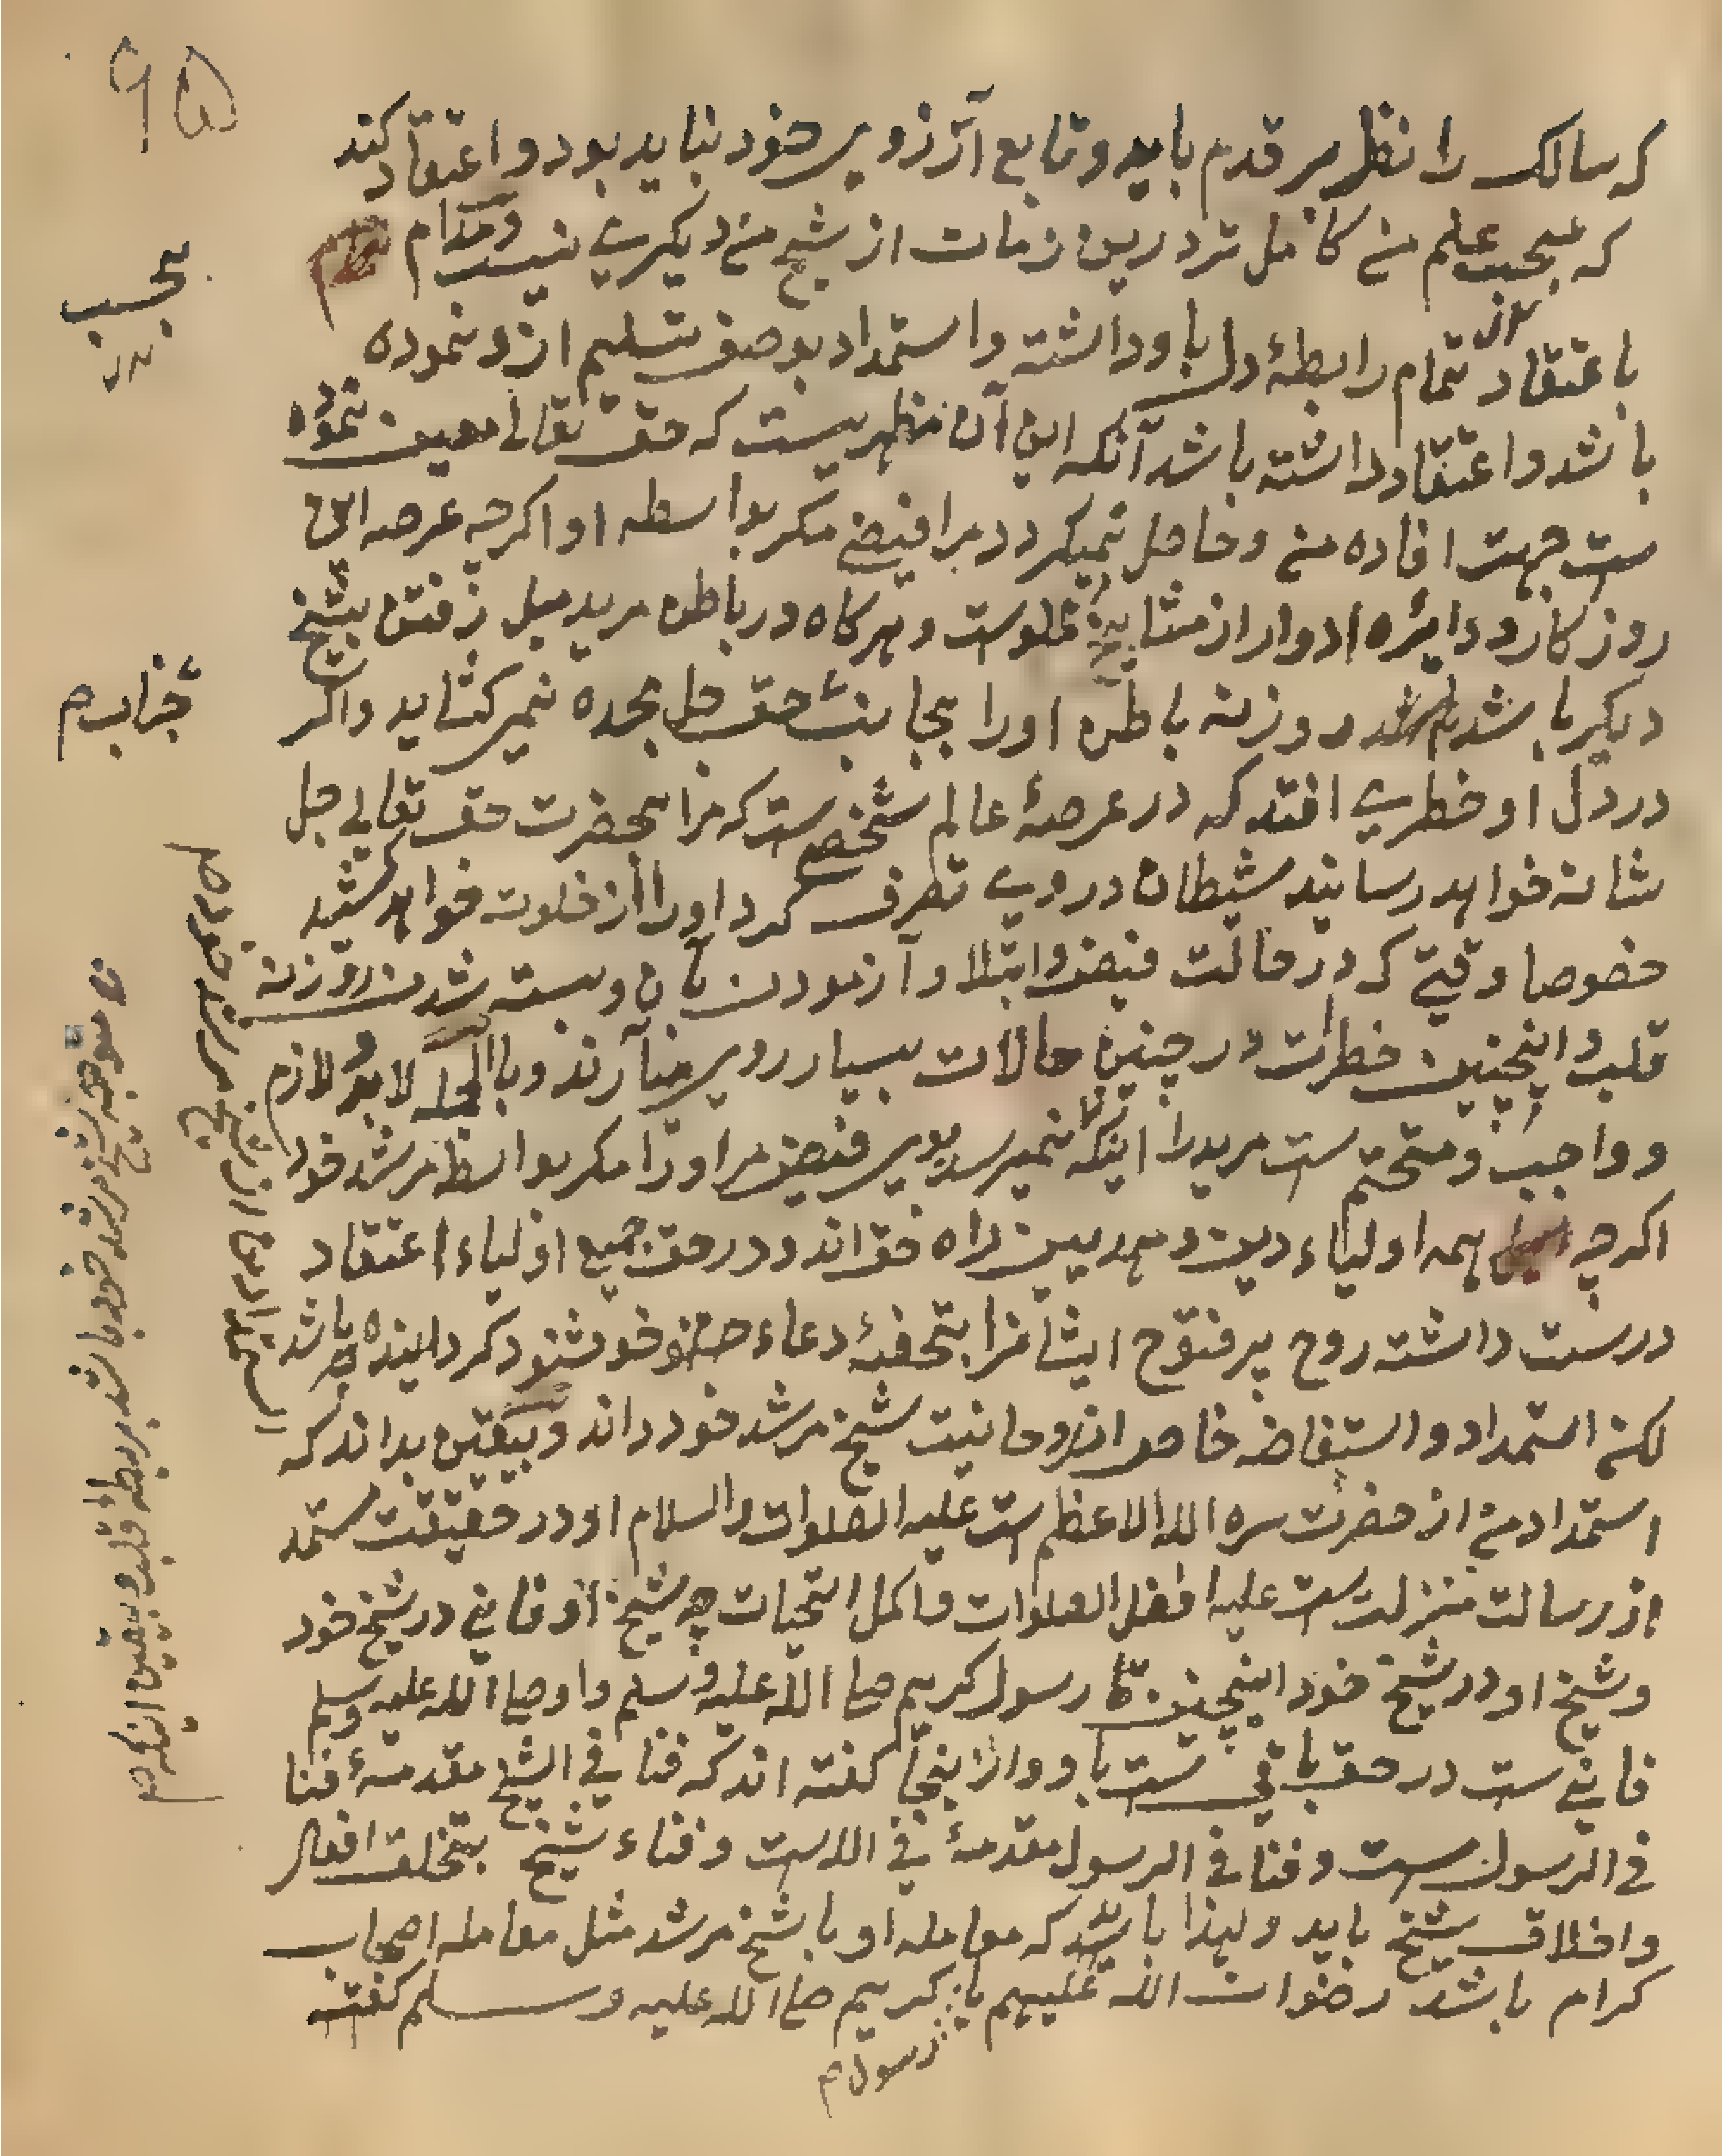 ۹۵
که سالک را نظر بر قدم باید و تابع آرزوی خود نباید بود و اعتقاد کند
که بحسب علم من کامل تر درین زمان از شیخ من دیگری نیست و مدام
باعتقاد تمام رابطهٔ دل باو داشته و استمداد بوصف تسلیم ازو نموده
باشد و اعتقاد داشته باشد آنکه این آن مظهریست که حق تعالی معین نموده
است جهت افاده من و حاصل نمیگردد مرا فیضی مگر بواسطه او اگرچه عرصه این
روزگار و دایره ادوار از مشایخ مملوست و هرگاه در باطن مرید میل رفتن بشیخ
دیگر باشد روزنه باطن او را بجانب حق جل مجده نمی گشاید و اگر
در دل او خطری افتد که در عرصهٔ عالم شخصی ست که مرا بحضرت حق تعالی جل
شانه خواهد رسانید شیطان در وی تصرف کرد او را از خلوت خواهد کشید
خصوصا وقتی که در حالت قبض و ابتلا و آزمودن آن و بسته شدن روزنه
قلب و اینچنین خطرات در چنین حالات بسیار روی می آرند و بالجمله لابد و لازم
و واجب و متحتم ست مرید را اینکه نمیرسد بوی فیض مر او را مگر بواسطه مرشد خود
اگرچه همه اولیاء دین و مهدیین راه حق اند و در حق جمیع اولیاء اعتقاد
درست داشته روح پر فتوح ایشانرا بتحفهٔ دعاء خوشنود گرداینده باشد
لکن استمداد و استفاضه خاص از روحانیت شیخ مرشد خود داند و بیقین بداند که
استمداد من از حضرت سره الله الاعظم ست علیه الصلوات و السلام او در حقیقت مستمد
از رسالت منزلت ست علیه افضل الصلوات و اکمل التحیات چه شیخ او فانی در شیخ خود
و شیخ او در شیخ خود اینچنین تا رسول کریم صلی الله علیه وسلم و او صلی الله علیه وسلم
فانی ست در حق باقی ست باو و از اینجا گفته اند که فنا فی الشیخ مقدمهٔ فنا
فی الرسول ست و فنا فی الرسول مقدمهٔ فی الله ست و فناء شیخ بتخلق افعال
و اخلاق شیخ باید و لهذا باید که معامله او با شیخ مرشد مثل معامله اصحاب
کرام باشد رضوان الله علیهم با کریم صلی الله علیه وسلم گفته
رسول م
بحسب
جناب م
متوجه شیخ مرشد خود باشد بربطهٔ قلب و بیقین اینکه